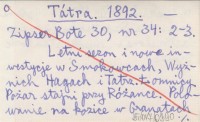 Tátra. 1892. —
Zipser Bote 30, nr 34: 2-3.
Letni sezon i nowe in-
westycje w Smokowcach, Wyż-
nich Hagach i Tatrz. Łomnicy.
Pożar stajni przy Różance. Polo-
wanie na kozice w Granatach